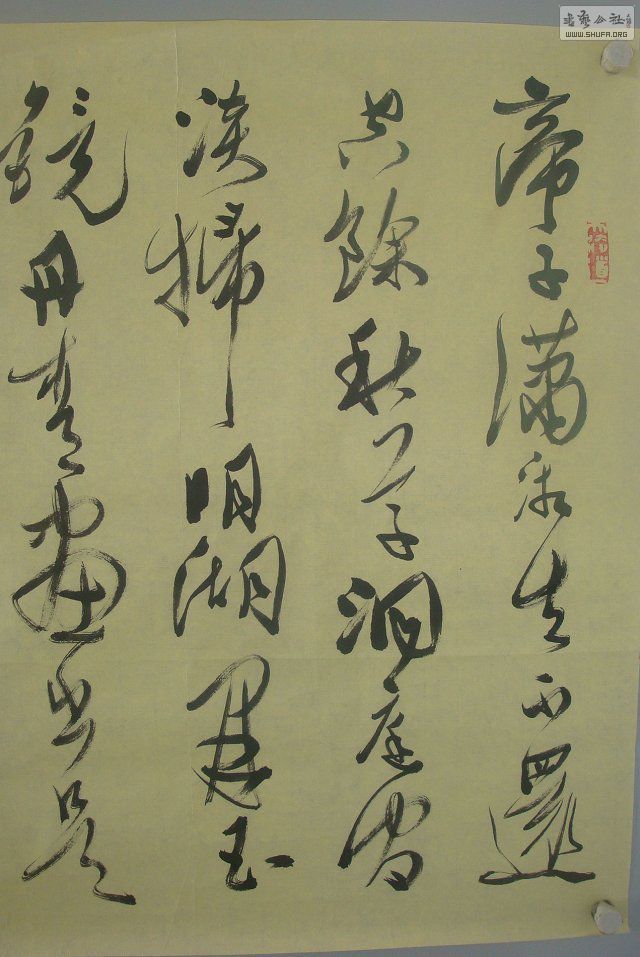 帝子瀟湘去不還
空餘秋草洞庭間
淡掃明湖開玉
鏡丹青畫出是
书艺公社
WWW.SHUFA.ORG